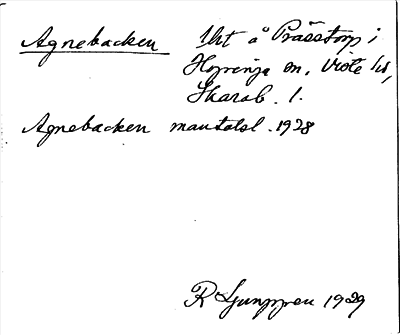 Agnebacken Uht å Prästorp i
Hyringa sn, Viste hd,
Skarab. l.
Agnebacken mantalsl. 1928
R Ljunggren 1929